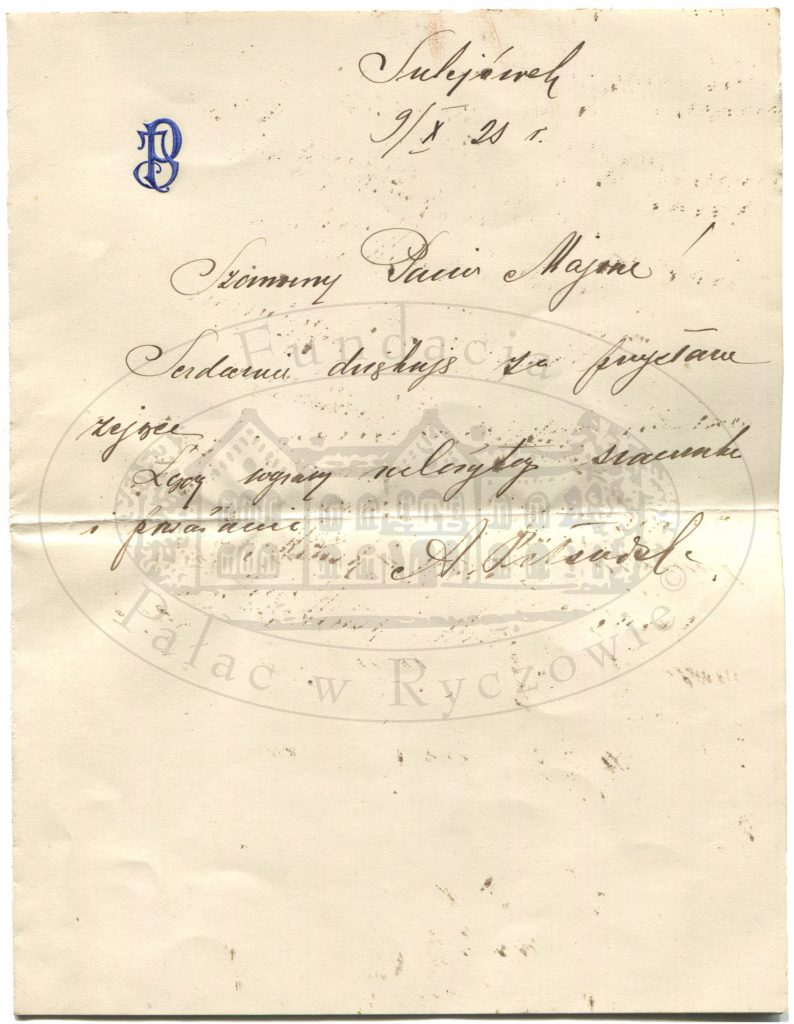 Sulejówek
9/X 25 r.
Szanowny Panie Majorze!
Serdecznie dziękuję za przysłane
zające
Łączę wyrazy należytego szacunku
i poważania
A. Piłsudska
Fundacja
Pałac w Ryczowie
©